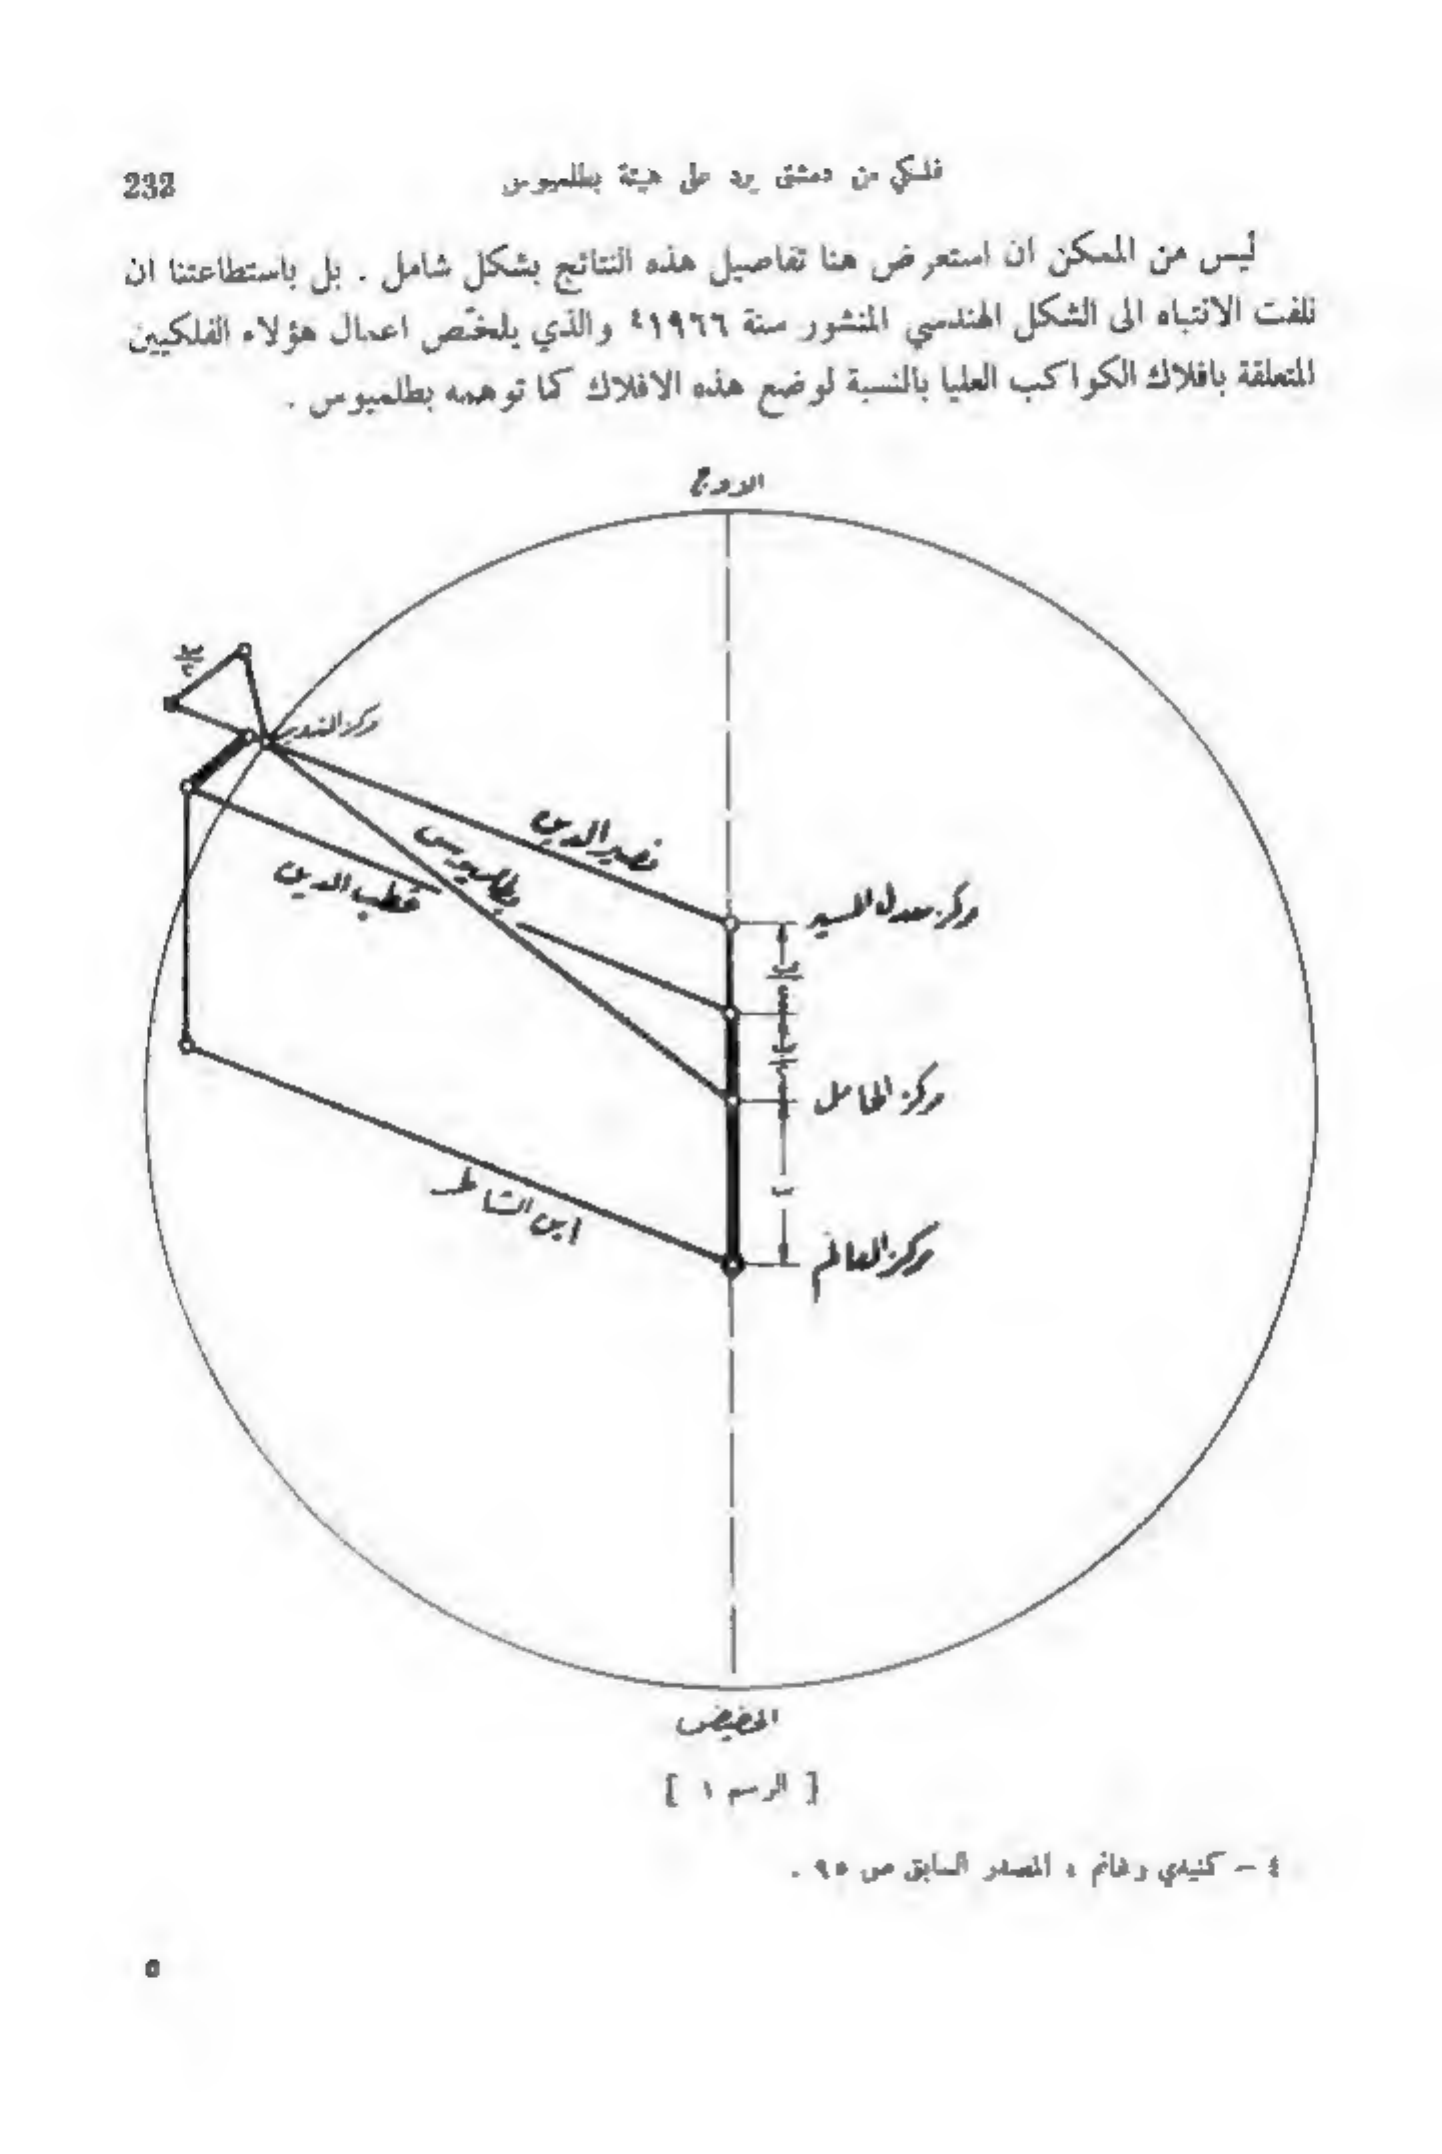 فلكي من دمشق يرد على هيئة بطلميوس
232
ليس من الممكن ان استعرض هنا تفاصيل هذه النتائج بشكل شامل . بل باستطاعتنا ان
نلفت الانتباه الى الشكل الهندسي المنشور سنة ١٩٦٦ ٤ والذي يلخّص اعمال هؤلاء الفلكيين
المتعلقة بافلاك الكواكب العليا بالنسبة لوضع هذه الافلاك كما توهمه بطلميوس .
الاوج
مركز التدوير
نصير الدين
بطلميوس
قطب الدين
مركز معدل المسير
مركز الحامل
ابن الشاطر
مركز العالم
الحضيض
[ الرسم ١ ]
٤ – كنيدي وغانم ، المصدر السابق ص ٩٥ .
٥